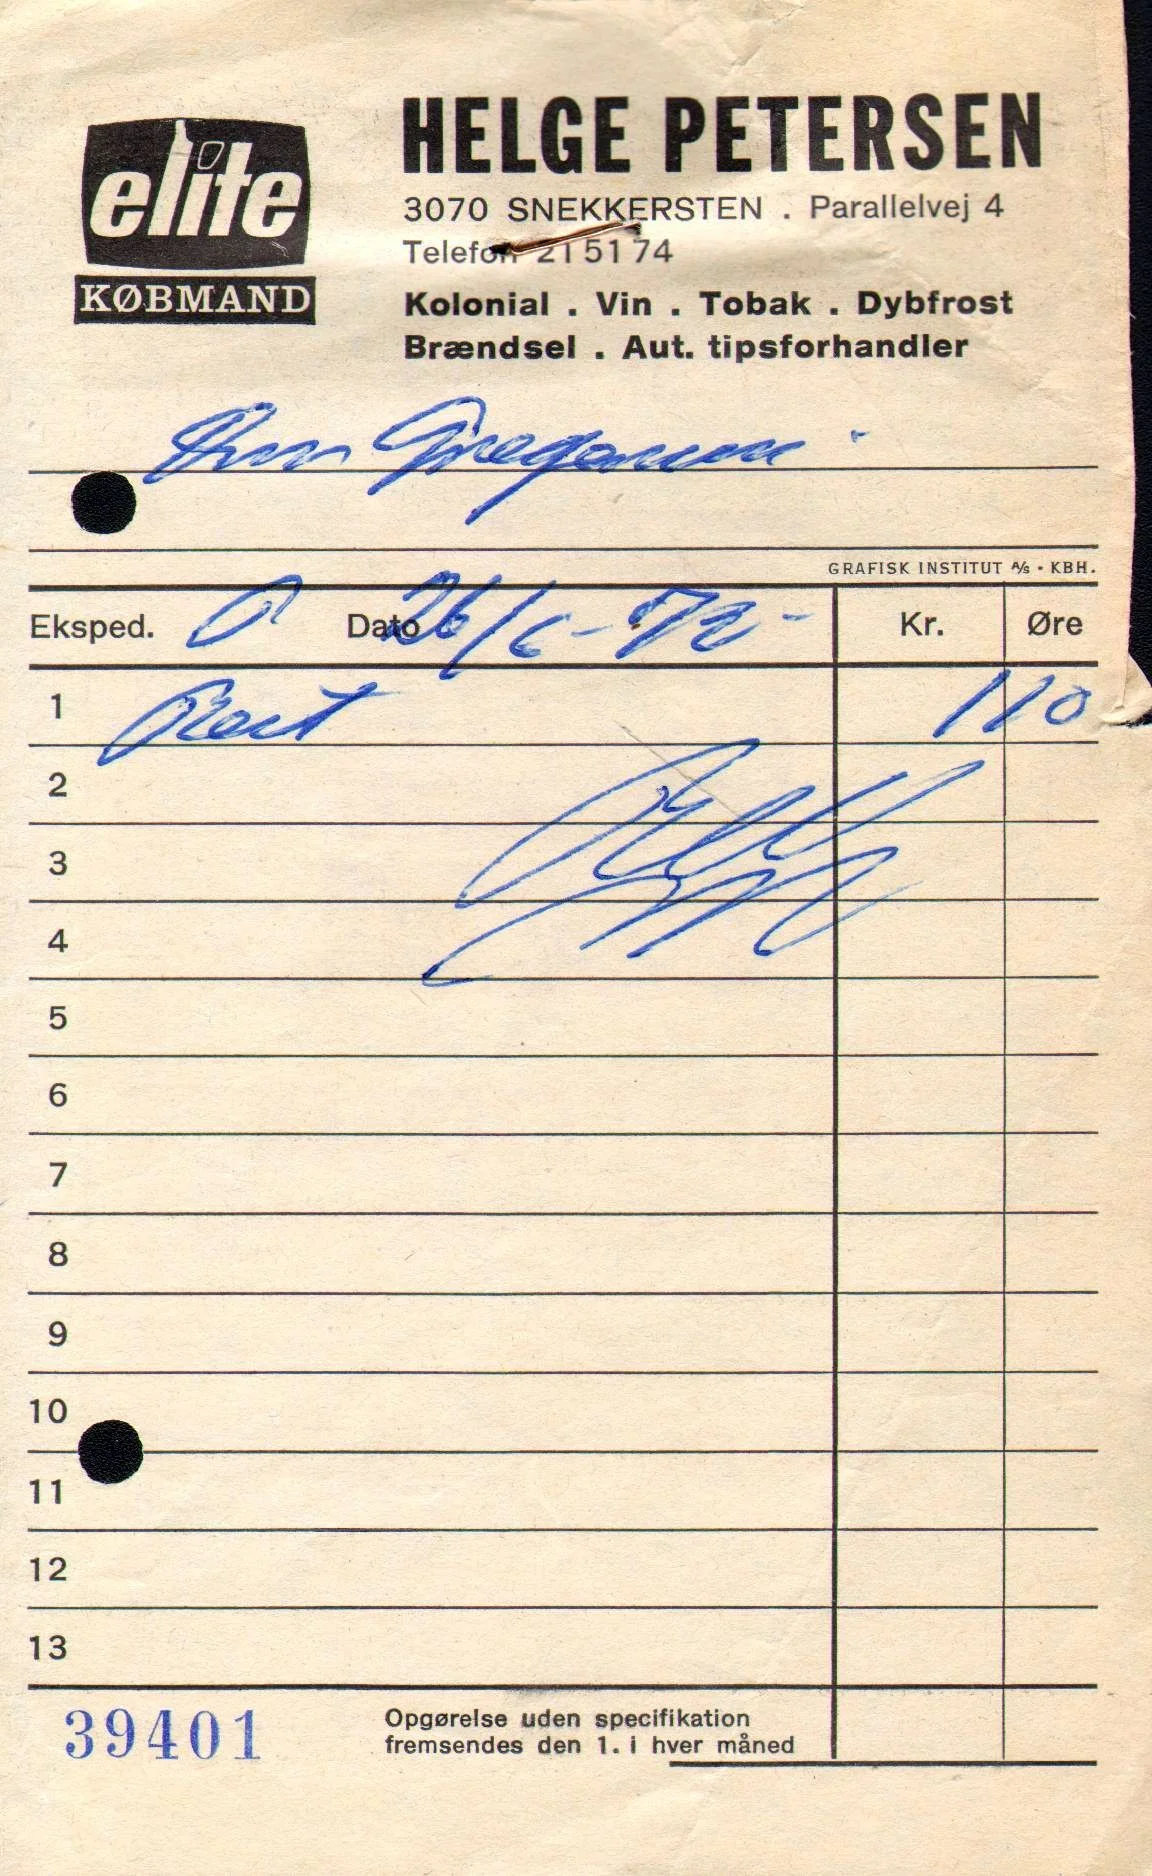 elite
KØBMAND
HELGE PETERSEN
3070 SNEKKERSTEN . Parallelvej 4
Telefon 21 51 74
Kolonial . Vin . Tobak . Dybfrost
Brændsel . Aut. tipsforhandler
GRAFISK INSTITUT A/S · KBH.
Eksped. Dato 26/6-72- Kr. Øre
1 110
2
3
4
5
6
7
8
9
10
11
12
13
39401
Opgørelse uden specifikation
fremsendes den 1. i hver måned